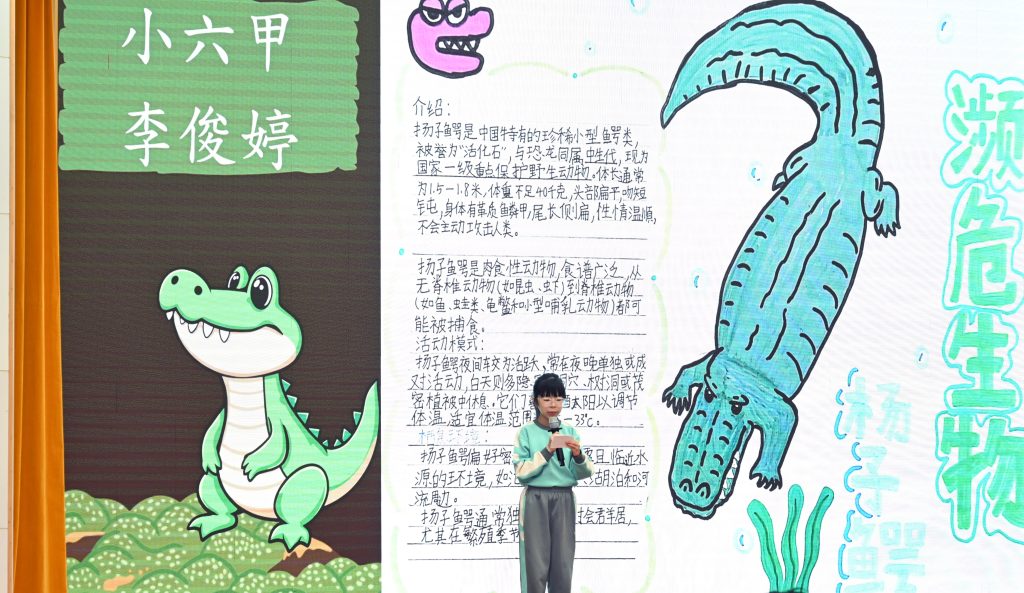 小六甲
李俊婷
介绍：
扬子鳄是中国特有的珍稀小型鳄类，
被誉为“活化石”，与恐龙同属中生代，现为
国家一级重点保护野生动物。体长通常
为1.5－1.8米，体重不足40千克，头部扁平，吻短
钝，身体有革质鳞甲，尾长侧扁，性情温顺，
不会主动攻击人类。
扬子鳄是肉食性动物，食谱广泛，从
无脊椎动物（如昆虫、虾）到脊椎动物
（如鱼、蛙类、龟鳖和小型哺乳动物）都可
能被捕食。
活动模式：
扬子鳄夜间较为活跃，常在夜晚单独或成
对活动，白天则多隐 洞穴、树洞或茂
密植被中休息。它们 太阳以调节
体温，适宜体温范围 －33℃。
扬子鳄偏好 且临近水
源的环境，如 湖泊和河
流周边。
扬子鳄通常独 会群居，
尤其在繁殖季节
濒危生物
扬子鳄